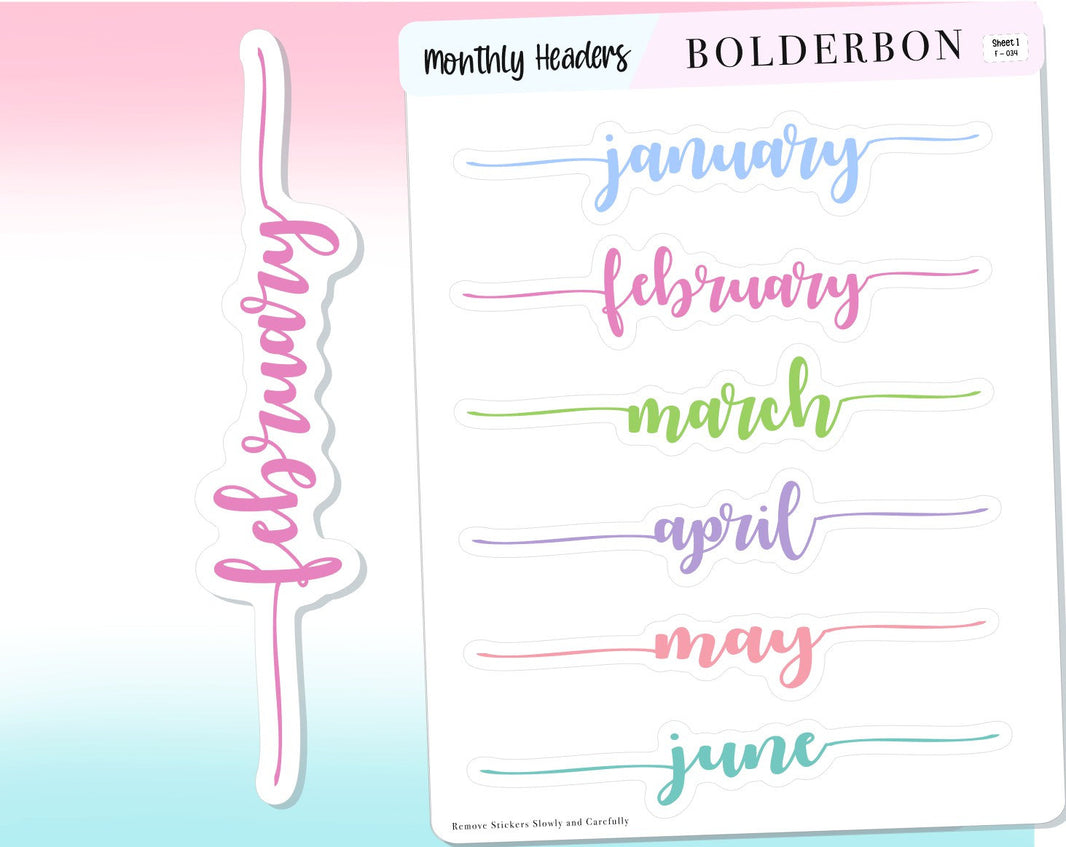 february
Monthly Headers
BOLDERBON
Sheet 1
F - 034
january
february
march
april
may
june
Remove Stickers Slowly and Carefully